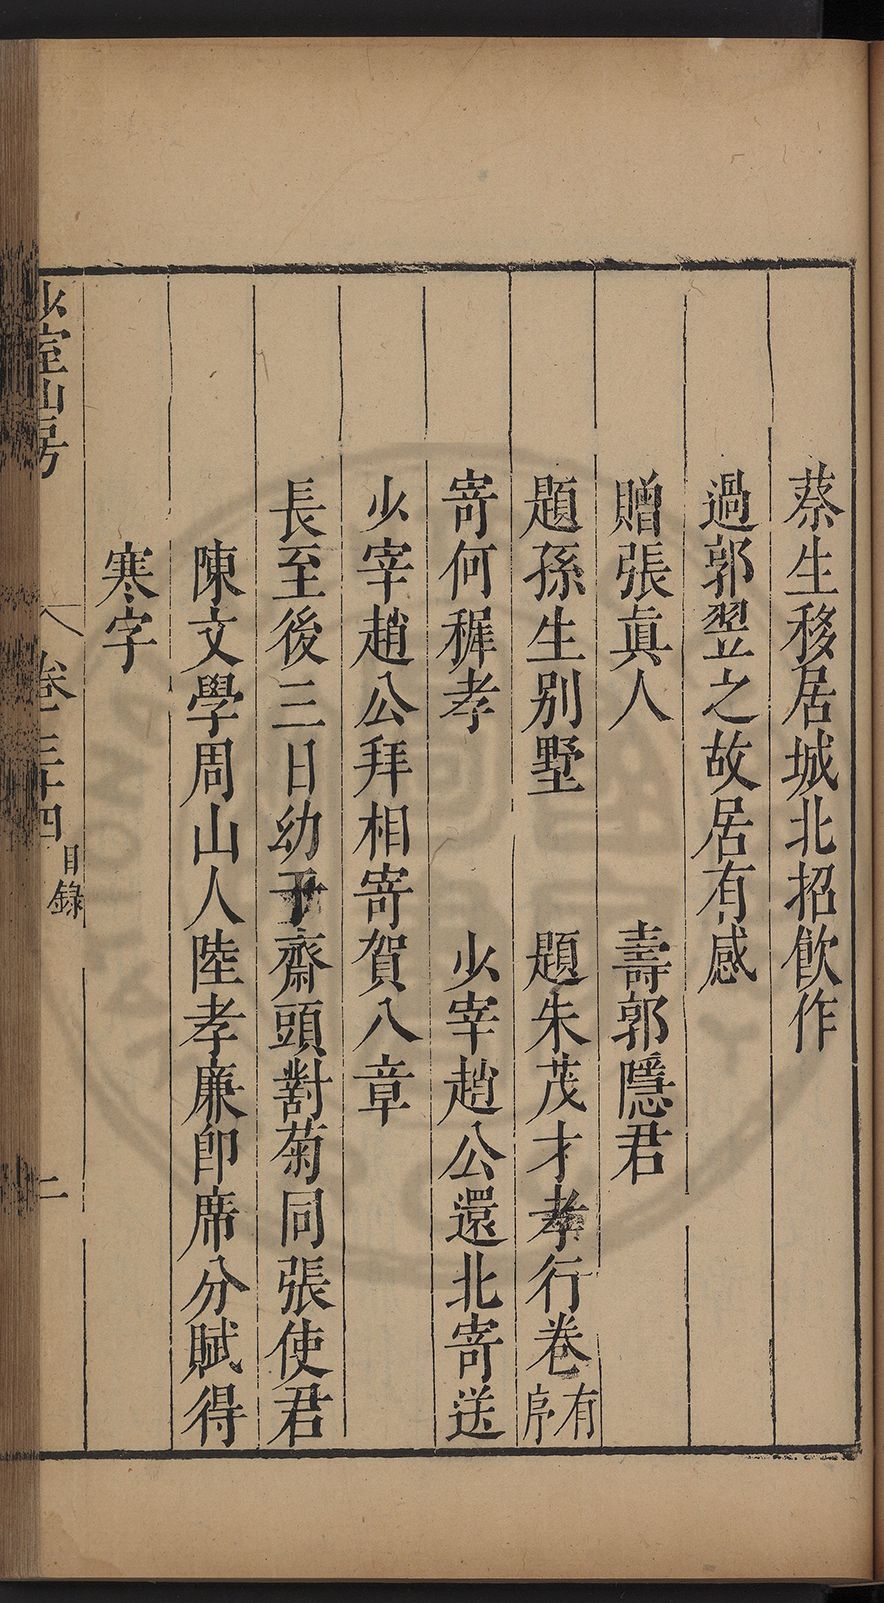 蔡生移居城北招飲作
過郭翌之故居有感
贈張眞人　壽郭隱君
題孫生別墅　題朱茂才孝行卷有序
寄何穉孝　少宰趙公還北寄送
少宰趙公拜相寄賀八章
長至後三日幼于齋頭對菊同張使君
陳文學周山人陸孝廉卽席分賦得
寒字
少室山房　卷三十四目錄　二